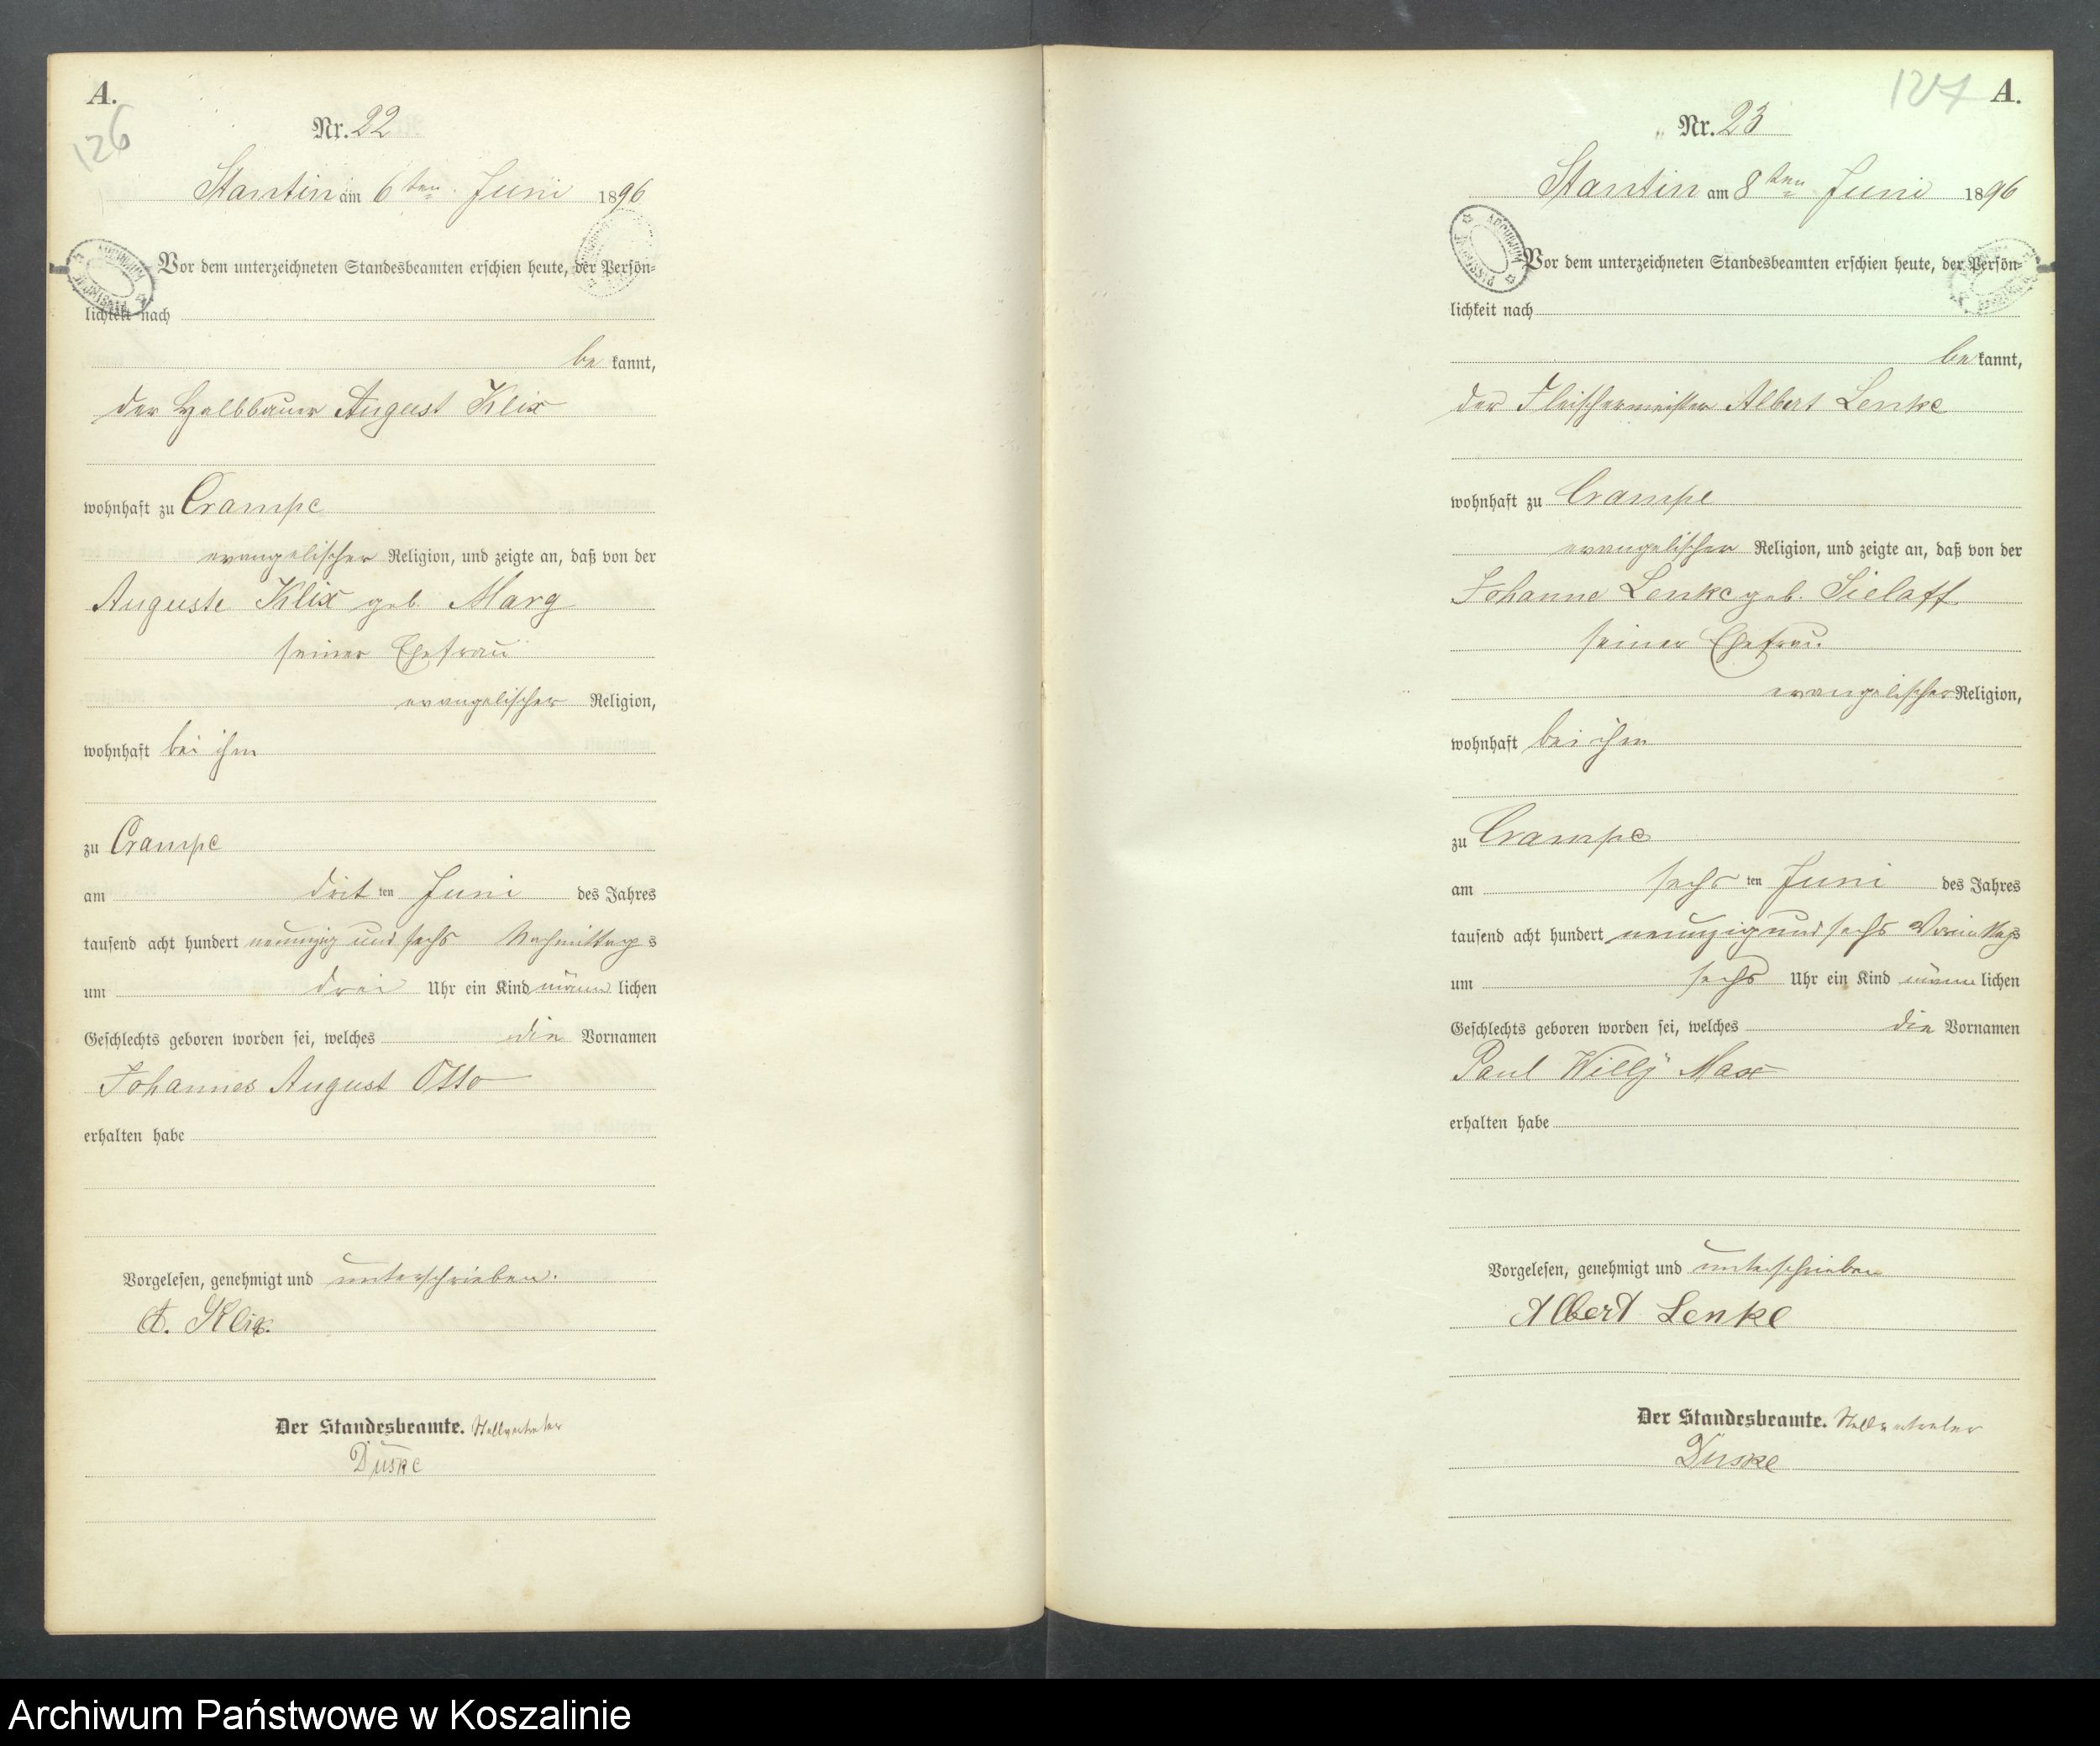 A.
126
Nr. 22
Stantin am 6 ten Juni 1896
Vor dem unterzeichneten Standesbeamten erschien heute, der Persön=
lichkeit nach
be kannt,
der Halbbauer August Klix
wohnhaft zu Crampe
evangelischer Religion, und zeigte an, daß von der
Auguste Klix geb. Marg
seiner Ehefrau
evangelischer Religion,
wohnhaft bei ihm
zu Crampe
am drit ten Juni des Jahres
tausend acht hundert neunzig und sechs Nachmittag s
um drei Uhr ein Kind männ lichen
Geschlechts geboren worden sei, welches die Vornamen
Johannes August Otto
erhalten habe
Vorgelesen, genehmigt und unterschrieben.
A. Klix.
Der Standesbeamte. Stellvertreter
Düske
A.
127
Nr. 23
Stantin am 8 ten Juni 1896
ARCHIWUM
Vor dem unterzeichneten Standesbeamten erschien heute, der Persön=
lichkeit nach
be kannt,
der Fleischermeister Albert Lenke
wohnhaft zu Crampe
evangelischer Religion, und zeigte an, daß von der
Johanne Lenke geb. Sielaff
seiner Ehefrau.
evangelischer Religion,
wohnhaft bei ihm
zu Crampe
am sechs ten Juni des Jahres
tausend acht hundert neunzig und sechs Vormittags
um sechs Uhr ein Kind männ lichen
Geschlechts geboren worden sei, welches die Vornamen
Paul Willÿ Max
erhalten habe
Vorgelesen, genehmigt und unterschrieben
Albert Lenke
Der Standesbeamte. Stellvertreter
Düske
Archiwum Państwowe w Koszalinie